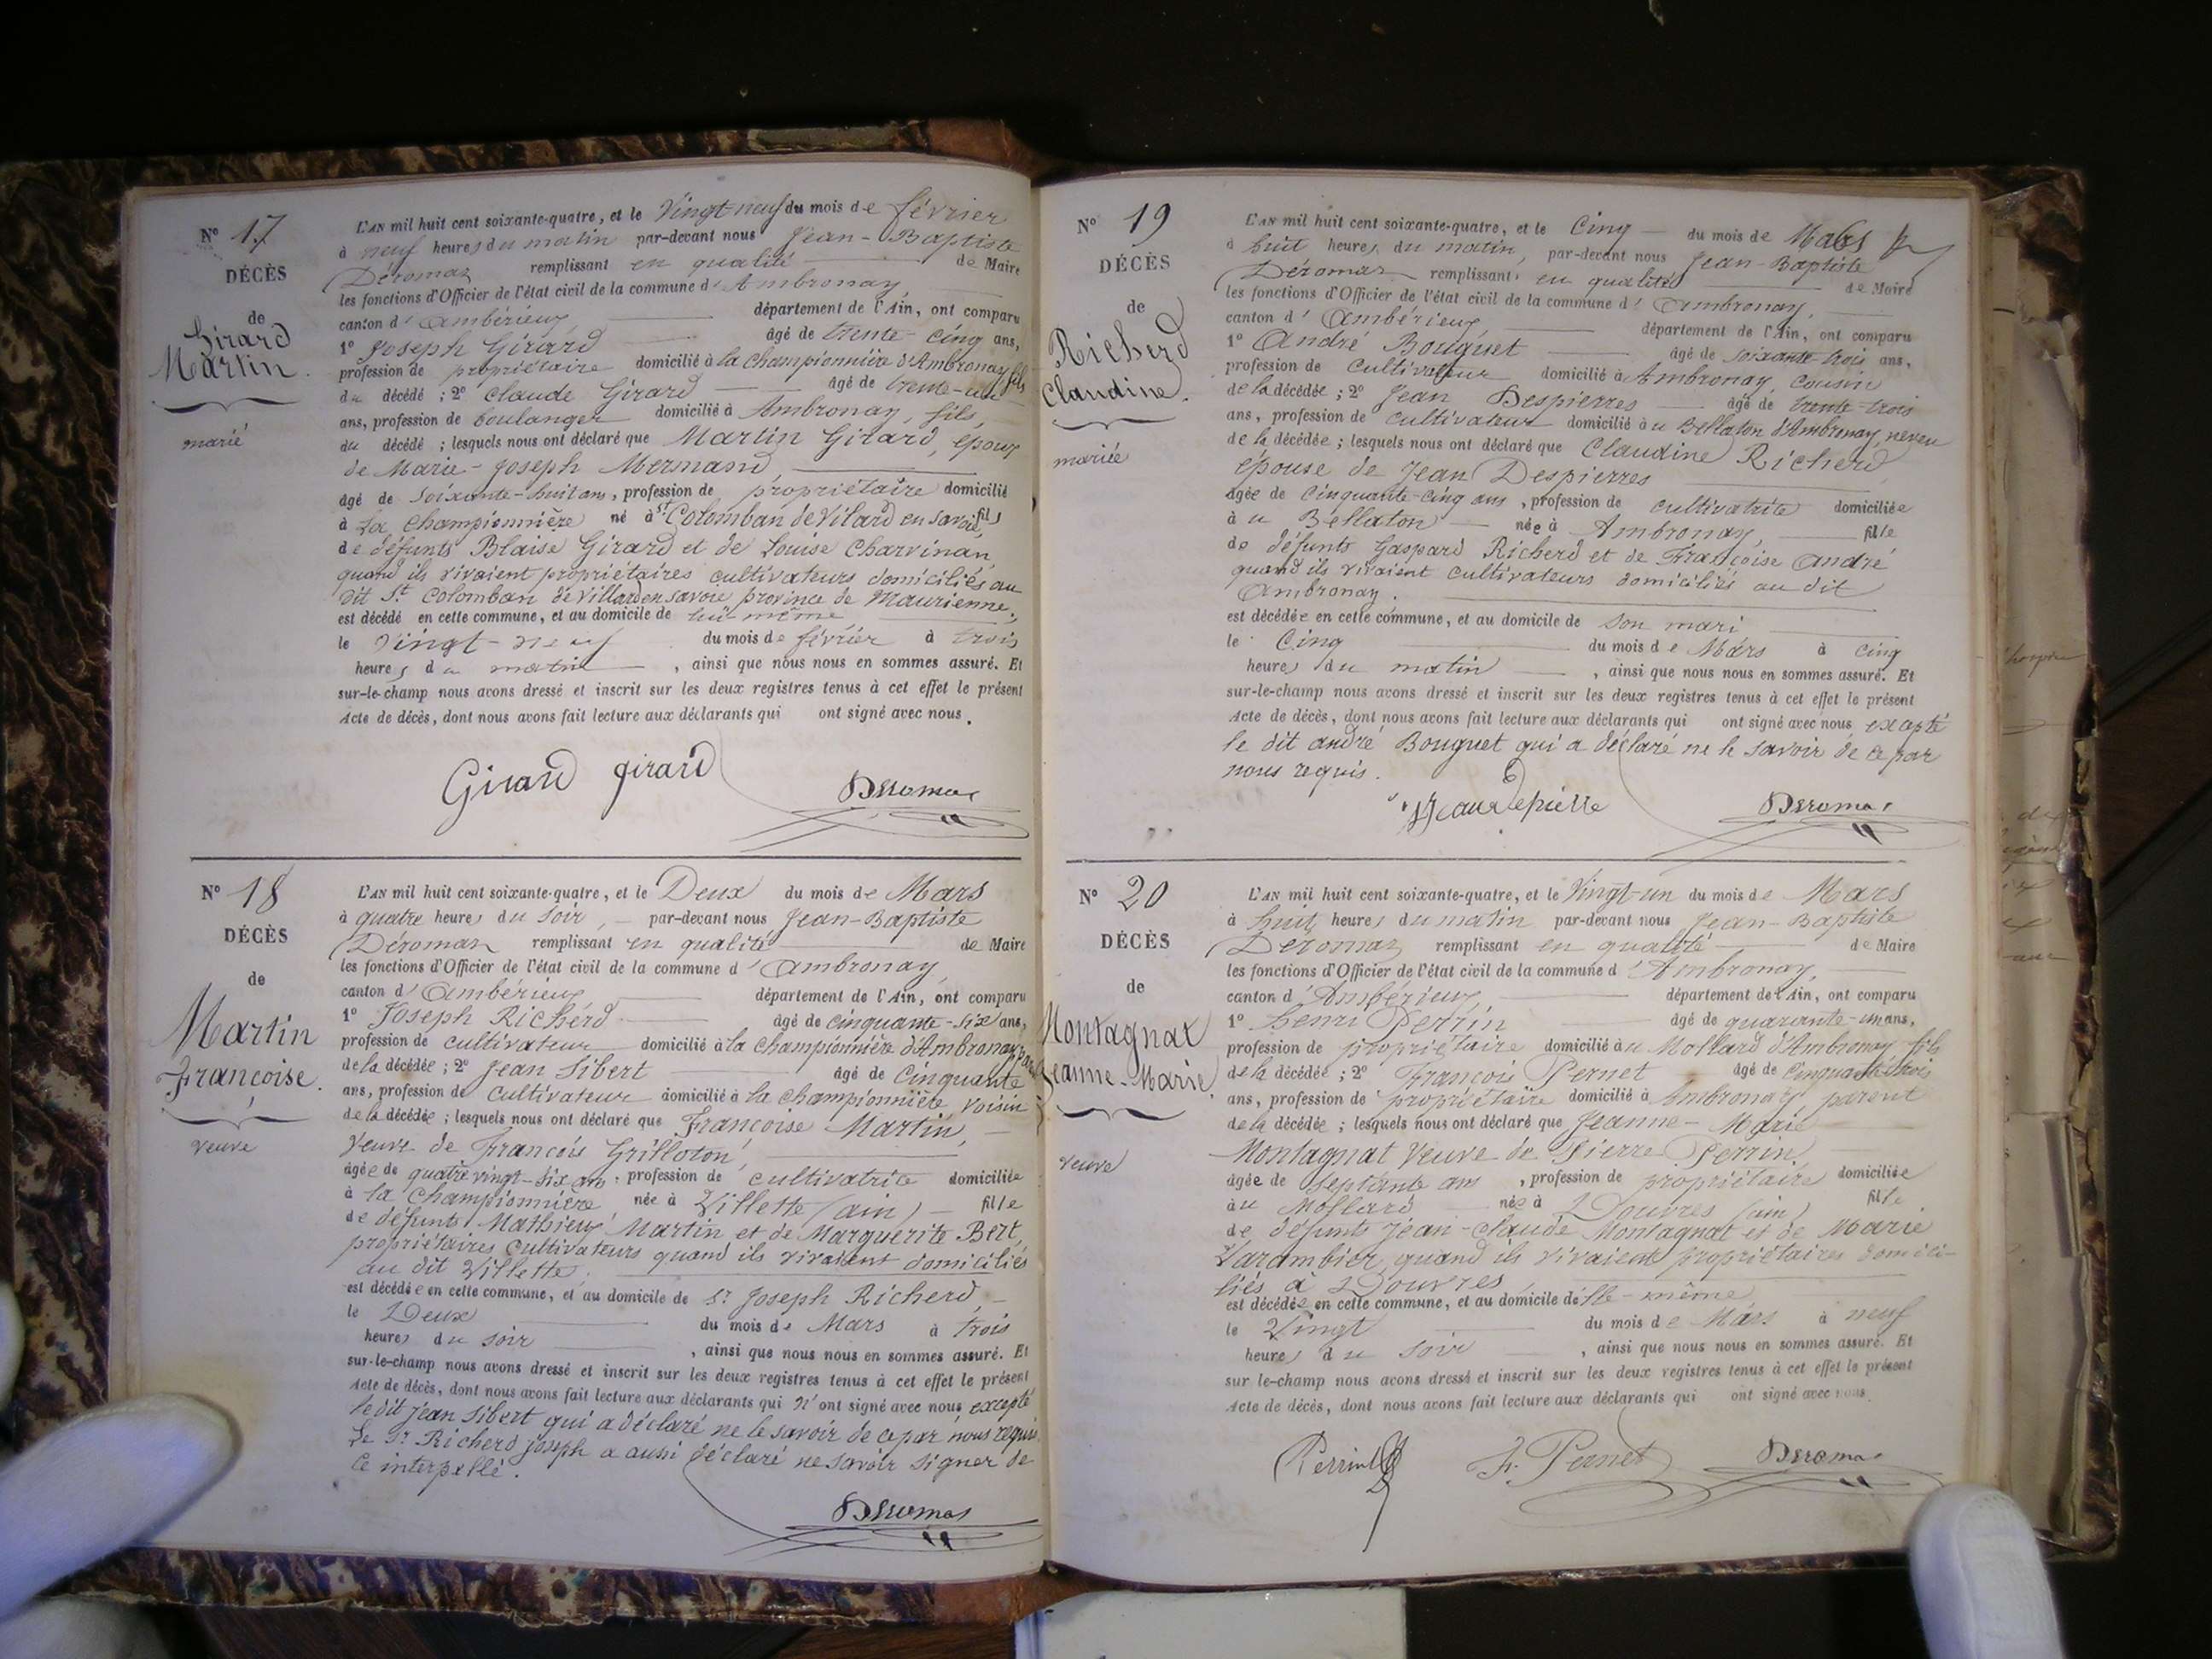 N° 17
DÉCÈS
de
Girard
Martin.
marié
L'AN mil huit cent soixante-quatre, et le Vingt-neuf du mois de février
à neuf heures du matin par-devant nous Jean-Baptiste
Déromas remplissant en qualité de Maire
les fonctions d'Officier de l'état civil de la commune d'Ambronay,
canton d'Ambérieux, département de l'Ain, ont comparu
1° Joseph Girard âgé de trente-cinq ans,
profession de propriétaire domicilié à la Championnière d'Ambronay, fils
du décédé ; 2° Claude Girard âgé de trente-un
ans, profession de boulanger domicilié à Ambronay, fils,
du décédé ; lesquels nous ont déclaré que Martin Girard, époux
de Marie-Joseph Mermand,
âgé de soixante-huit ans, profession de propriétaire domicilié
à La Championnière né à St Colomban de Vilard en Savoie, fils
de défunts Blaise Girard et de Louise Charvinan,
quand ils vivaient propriétaires cultivateurs domiciliés au
dit St Colomban de Villard en savoie province de Maurienne,
est décédé en cette commune, et au domicile de lui-même
le vingt-neuf du mois de février à trois
heures du matin, ainsi que nous nous en sommes assuré. Et
sur-le-champ nous avons dressé et inscrit sur les deux registres tenus à cet effet le présent
Acte de décès, dont nous avons fait lecture aux déclarants qui ont signé avec nous.
Girard girard Deromas
N° 18
DÉCÈS
de
Martin
Françoise.
veuve
L'AN mil huit cent soixante-quatre, et le Deux du mois de Mars
à quatre heures du soir, par-devant nous Jean-Baptiste
Déromas remplissant en qualité de Maire
les fonctions d'Officier de l'état civil de la commune d'Ambronay,
canton d'Ambérieux département de l'Ain, ont comparu
1° Joseph Richérd âgé de cinquante-six ans,
profession de cultivateur domicilié à la Championnière d'Ambronay,
de la décédée ; 2° Jean Sibert âgé de cinquante
ans, profession de cultivateur domicilié à la Championnière voisin
de la décédée ; lesquels nous ont déclaré que Françoise Martin,
veuve de François Grilloton,
âgée de quatre vingt-six ans, profession de cultivatrice domiciliée
à la Championnière née à Villette (ain) fille
de défunts Mathieux Martin et de Marguerite Bert,
propriétaires cultivateurs quand ils vivaient domiciliés
au dit Villette.
est décédée en cette commune, et au domicile de Sr Joseph Richerd,
le Deux du mois de Mars à trois
heures du soir, ainsi que nous nous en sommes assuré. Et
sur-le-champ nous avons dressé et inscrit sur les deux registres tenus à cet effet le présent
Acte de décès, dont nous avons fait lecture aux déclarants qui n'ont signé avec nous excepté
le dit jean Sibert qui a déclaré ne le savoir de ce par nous requis.
Le Sr Richerd joseph a aussi déclaré ne savoir signer de
ce interpellé.
Deromas
N° 19
DÉCÈS
de
Richerd
Claudine.
mariée
L'AN mil huit cent soixante-quatre, et le Cinq du mois de Mars
à huit heures du matin, par-devant nous Jean-Baptiste
Déromas remplissant en qualité de Maire
les fonctions d'Officier de l'état civil de la commune d'Ambronay,
canton d'Ambérieux, département de l'Ain, ont comparu
1° André Bouguet âgé de soixante-trois ans,
profession de Cultivateur domicilié à Ambronay, cousin
de la décédée ; 2° Jean Despierres âgé de trente-trois
ans, profession de cultivateur domicilié à u Bellaton d'Ambronay, neveu
de la décédée ; lesquels nous ont déclaré que Claudine Richerd
épouse de Jean Despierres
âgée de Cinquante-cinq ans, profession de cultivatrice domiciliée
à u Bellaton née à Ambronay, fille
de défunts Gaspard Richerd et de Françoise André
quand ils vivaient cultivateurs domiciliés au dit
Ambronay.
est décédée en cette commune, et au domicile de son mari
le Cinq du mois de Mars à cinq
heures du matin, ainsi que nous nous en sommes assuré. Et
sur-le-champ nous avons dressé et inscrit sur les deux registres tenus à cet effet le présent
Acte de décès, dont nous avons fait lecture aux déclarants qui ont signé avec nous excepté
le dit andré Bouguet qui a déclaré ne le savoir de ce par
nous requis.
Deromas
N° 20
DÉCÈS
de
Montagnat
Jeanne-Marie.
veuve
L'AN mil huit cent soixante-quatre, et le Vingt-un du mois de Mars
à huit heures du matin par-devant nous Jean-Baptiste
Deromas remplissant en qualité de Maire
les fonctions d'Officier de l'état civil de la commune d'Ambronay,
canton d'Ambérieux, département de l'Ain, ont comparu
1° henri Perrin âgé de quarante-un ans,
profession de propriétaire domicilié à u Mollard d'Ambronay fils
de la décédée ; 2° François Pernet âgé de cinquante trois
ans, profession de propriétaire domicilié à Ambronay parent
de la décédée ; lesquels nous ont déclaré que Jeanne-Marie
Montagnat veuve de Pierre Perrin
âgée de septante ans, profession de propriétaire domiciliée
à u Mollard née à Douvres (ain) fille
de défunts Jean-Claude Montagnat et de Marie
Varambier, quand ils vivaient propriétaires domici-
liés à Douvres
est décédée en cette commune, et au domicile d'elle-même
le Vingt du mois de Mars à neuf
heures du soir, ainsi que nous nous en sommes assuré. Et
sur le-champ nous avons dressé et inscrit sur les deux registres tenus à cet effet le présent
Acte de décès, dont nous avons fait lecture aux déclarants qui ont signé avec nous.
Perrin F. Pernet Deromas